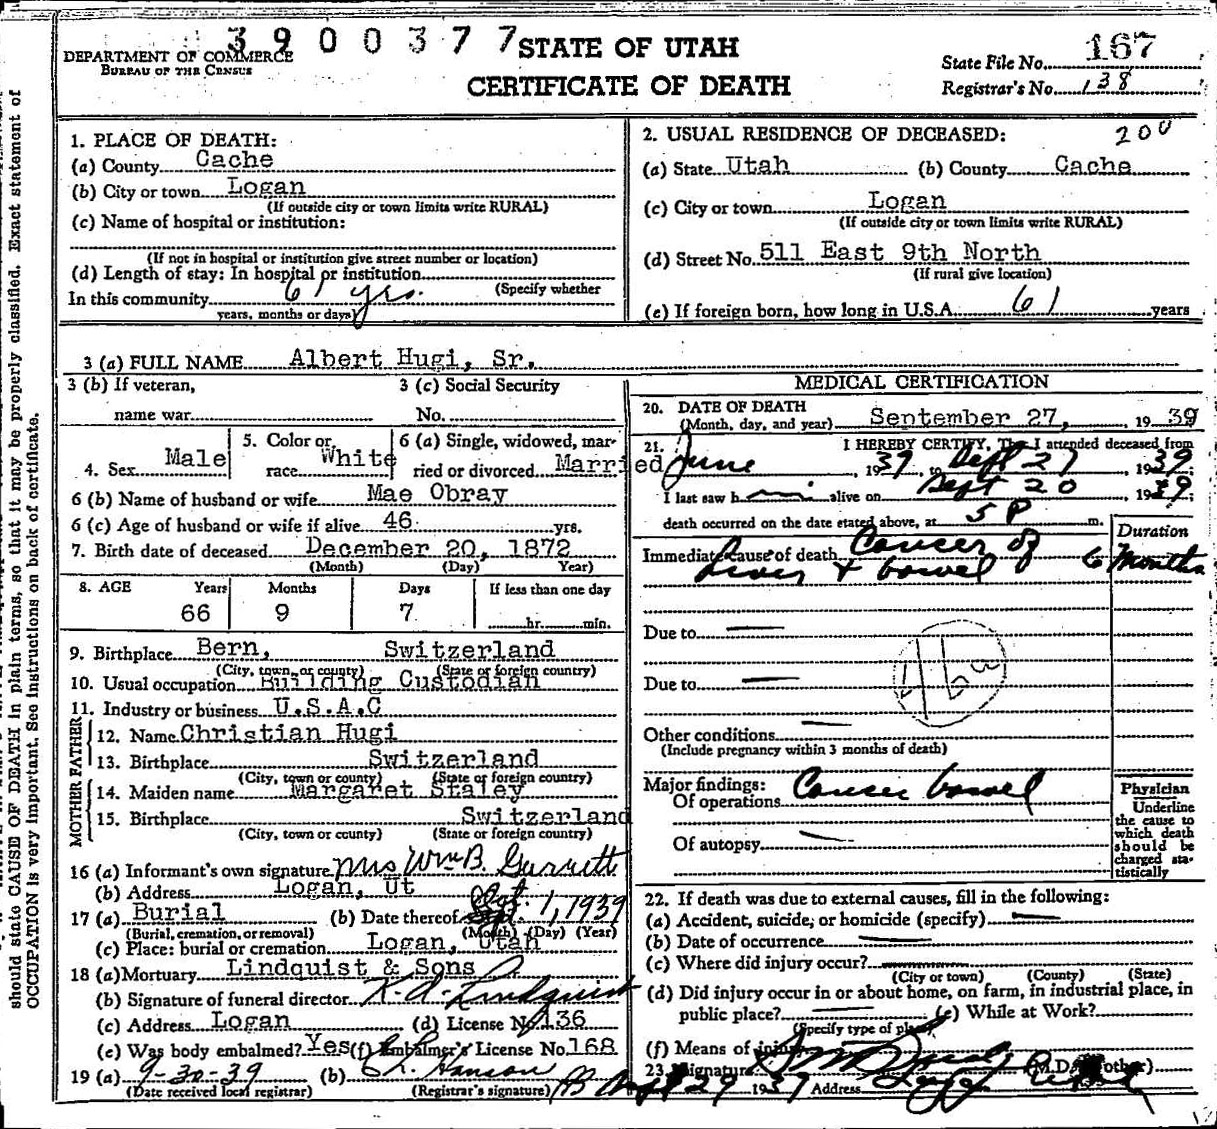 3900377
STATE OF UTAH
CERTIFICATE OF DEATH
DEPARTMENT OF COMMERCE
BUREAU OF THE CENSUS
State File No. 167
Registrar's No. 138
200
1. PLACE OF DEATH:
(a) County Cache
(b) City or town Logan
(If outside city or town limits write RURAL)
(c) Name of hospital or institution:
(If not in hospital or institution give street number or location)
(d) Length of stay: In hospital or institution
(Specify whether
In this community 61 yrs.
years, months or days)
2. USUAL RESIDENCE OF DECEASED:
(a) State Utah (b) County Cache
(c) City or town Logan
(If outside city or town limits write RURAL)
(d) Street No. 511 East 9th North
(If rural give location)
(e) If foreign born, how long in U.S.A. 61 years
3 (a) FULL NAME Albert Hugi, Sr.
3 (b) If veteran,
name war
3 (c) Social Security
No.
4. Sex Male
5. Color or
race White
6 (a) Single, widowed, mar-
ried or divorced Married
6 (b) Name of husband or wife Mae Obray
6 (c) Age of husband or wife if alive 46 yrs.
7. Birth date of deceased December 20, 1872
(Month) (Day) Year)
8. AGE Years Months Days If less than one day
66 9 7 hr. min.
9. Birthplace Bern, Switzerland
(City, town, or county) (State or foreign country)
10. Usual occupation Building Custodian
11. Industry or business U.S.A.C
FATHER
12. Name Christian Hugi
13. Birthplace Switzerland
(City, town or county) (State or foreign country)
MOTHER
14. Maiden name Margaret Staley
15. Birthplace Switzerland
(City, town or county) (State or foreign country)
16 (a) Informant's own signature Mrs Wm B. Gurnett
(b) Address Logan, Ut
17 (a) Burial (b) Date thereof Oct. 1, 1939
(Burial, cremation, or removal) (Month) (Day) (Year)
(c) Place: burial or cremation Logan, Utah
18 (a) Mortuary Lindquist & Sons
(b) Signature of funeral director Lindquist
(c) Address Logan (d) License No. 136
(e) Was body embalmed? Yes (f) Embalmer's License No. 168
19 (a) 9-30-39 (b) Hanson
(Date received local registrar) (Registrar's signature)
MEDICAL CERTIFICATION
20. DATE OF DEATH
(Month, day, and year) September 27, 1939
21. I HEREBY CERTIFY, That I attended deceased from
June, 1939, to Sept 27, 1939
I last saw him alive on Sept 20, 1939;
death occurred on the date stated above, at 5 P m.
Duration
Immediate cause of death Cancer of
Liver + bowel 6 Months
Due to
Due to
Other conditions
(Include pregnancy within 3 months of death)
Major findings:
Of operations Cancer bowel
Of autopsy
Physician
Underline
the cause to
which death
should be
charged sta-
tistically
22. If death was due to external causes, fill in the following:
(a) Accident, suicide, or homicide (specify)
(b) Date of occurrence
(c) Where did injury occur?
(City or town) (County) (State)
(d) Did injury occur in or about home, on farm, in industrial place, in
public place? (e) While at Work?
(Specify type of place)
(f) Means of injury
23. Signature (M.D. or other)
29 1939 Address
should state CAUSE OF DEATH in plain terms, so that it may be properly classified. Exact statement of
OCCUPATION is very important. See instructions on back of certificate.